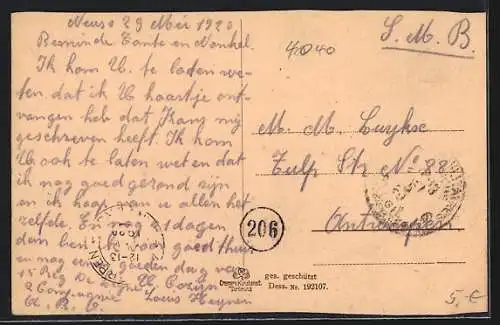 Neuss 29 Mei 1920
Beminde Tante en Nonkel.
Ik kom U. te laden we-
ten dat ik U kaartje ont-
vangen heb dat Frans mij
geschreven heeft. Ik kom
U ook te laten weten dat
ik nog goed gezond zijn
en ik hoop van u allen het
zelfde. En nog 21 dagen
dan ben ik voor goed thuis
en nog een goeden dag van
Cozijn
2 Compagnie Louis Heynen
4040
S. M. B.
M. M. Luykse
Tulp Str No 88
Antwerpen
206
12-13
ges. geschützt
Dess. No. 192107.
5,-€